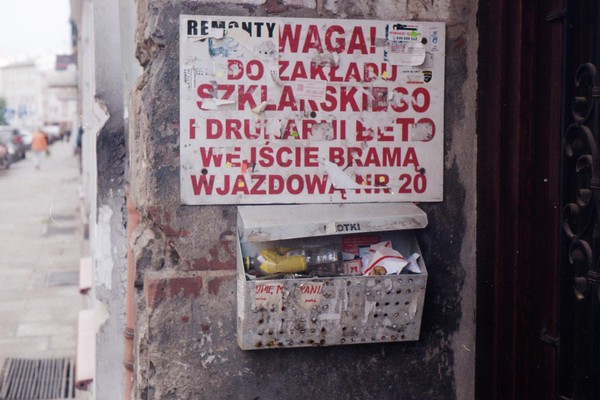 REMONTY
UWAGA!
DO ZAKŁADU
SZKLARSKIEGO
I DRUKARNI BETO
WEJŚCIE BRAMĄ
WJAZDOWĄ NR 20
OTKI